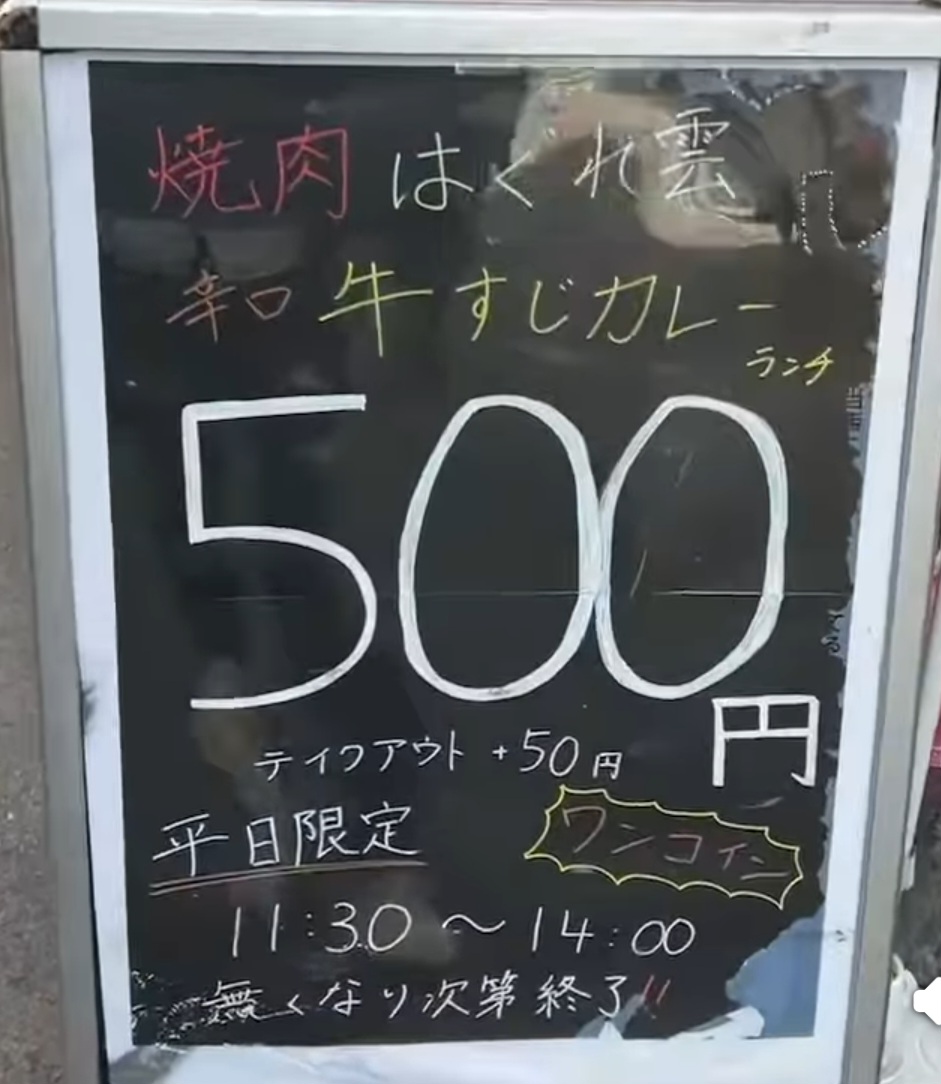 焼肉 はぐれ雲
辛口 牛すじカレー
ランチ
500
円
テイクアウト +50円
平日限定
ワンコイン
11:30〜14:00
無くなり次第終了!!